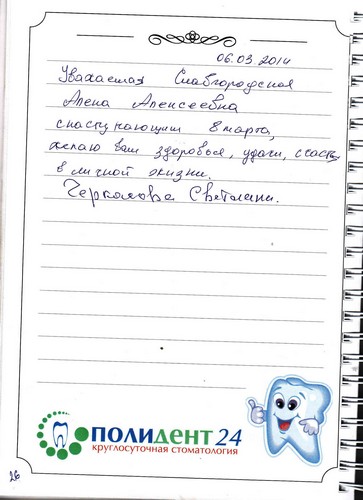 06.03.2014
Уважаемая Славгородская
Алена Алексеевна
с наступающим 8 марта,
желаю вам здоровья, удачи, счастья
в личной жизни.
Черкасова Светлана.
ПОЛИДЕНТ 24
круглосуточная стоматология
26